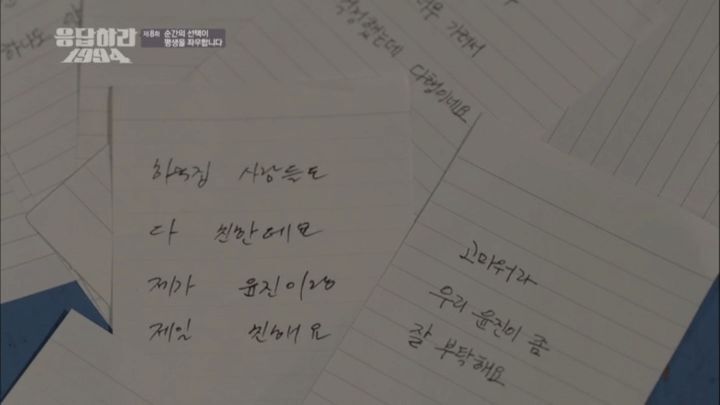 응답하라 1994
제8화 순간의 선택이
평생을 좌우합니다
가려서
걱정했는데
다행이네요
하숙집 사람들도
다 친한데요
제가 윤진이랑
제일 친해요
고마워라
우리 윤진이 좀
잘 부탁해요